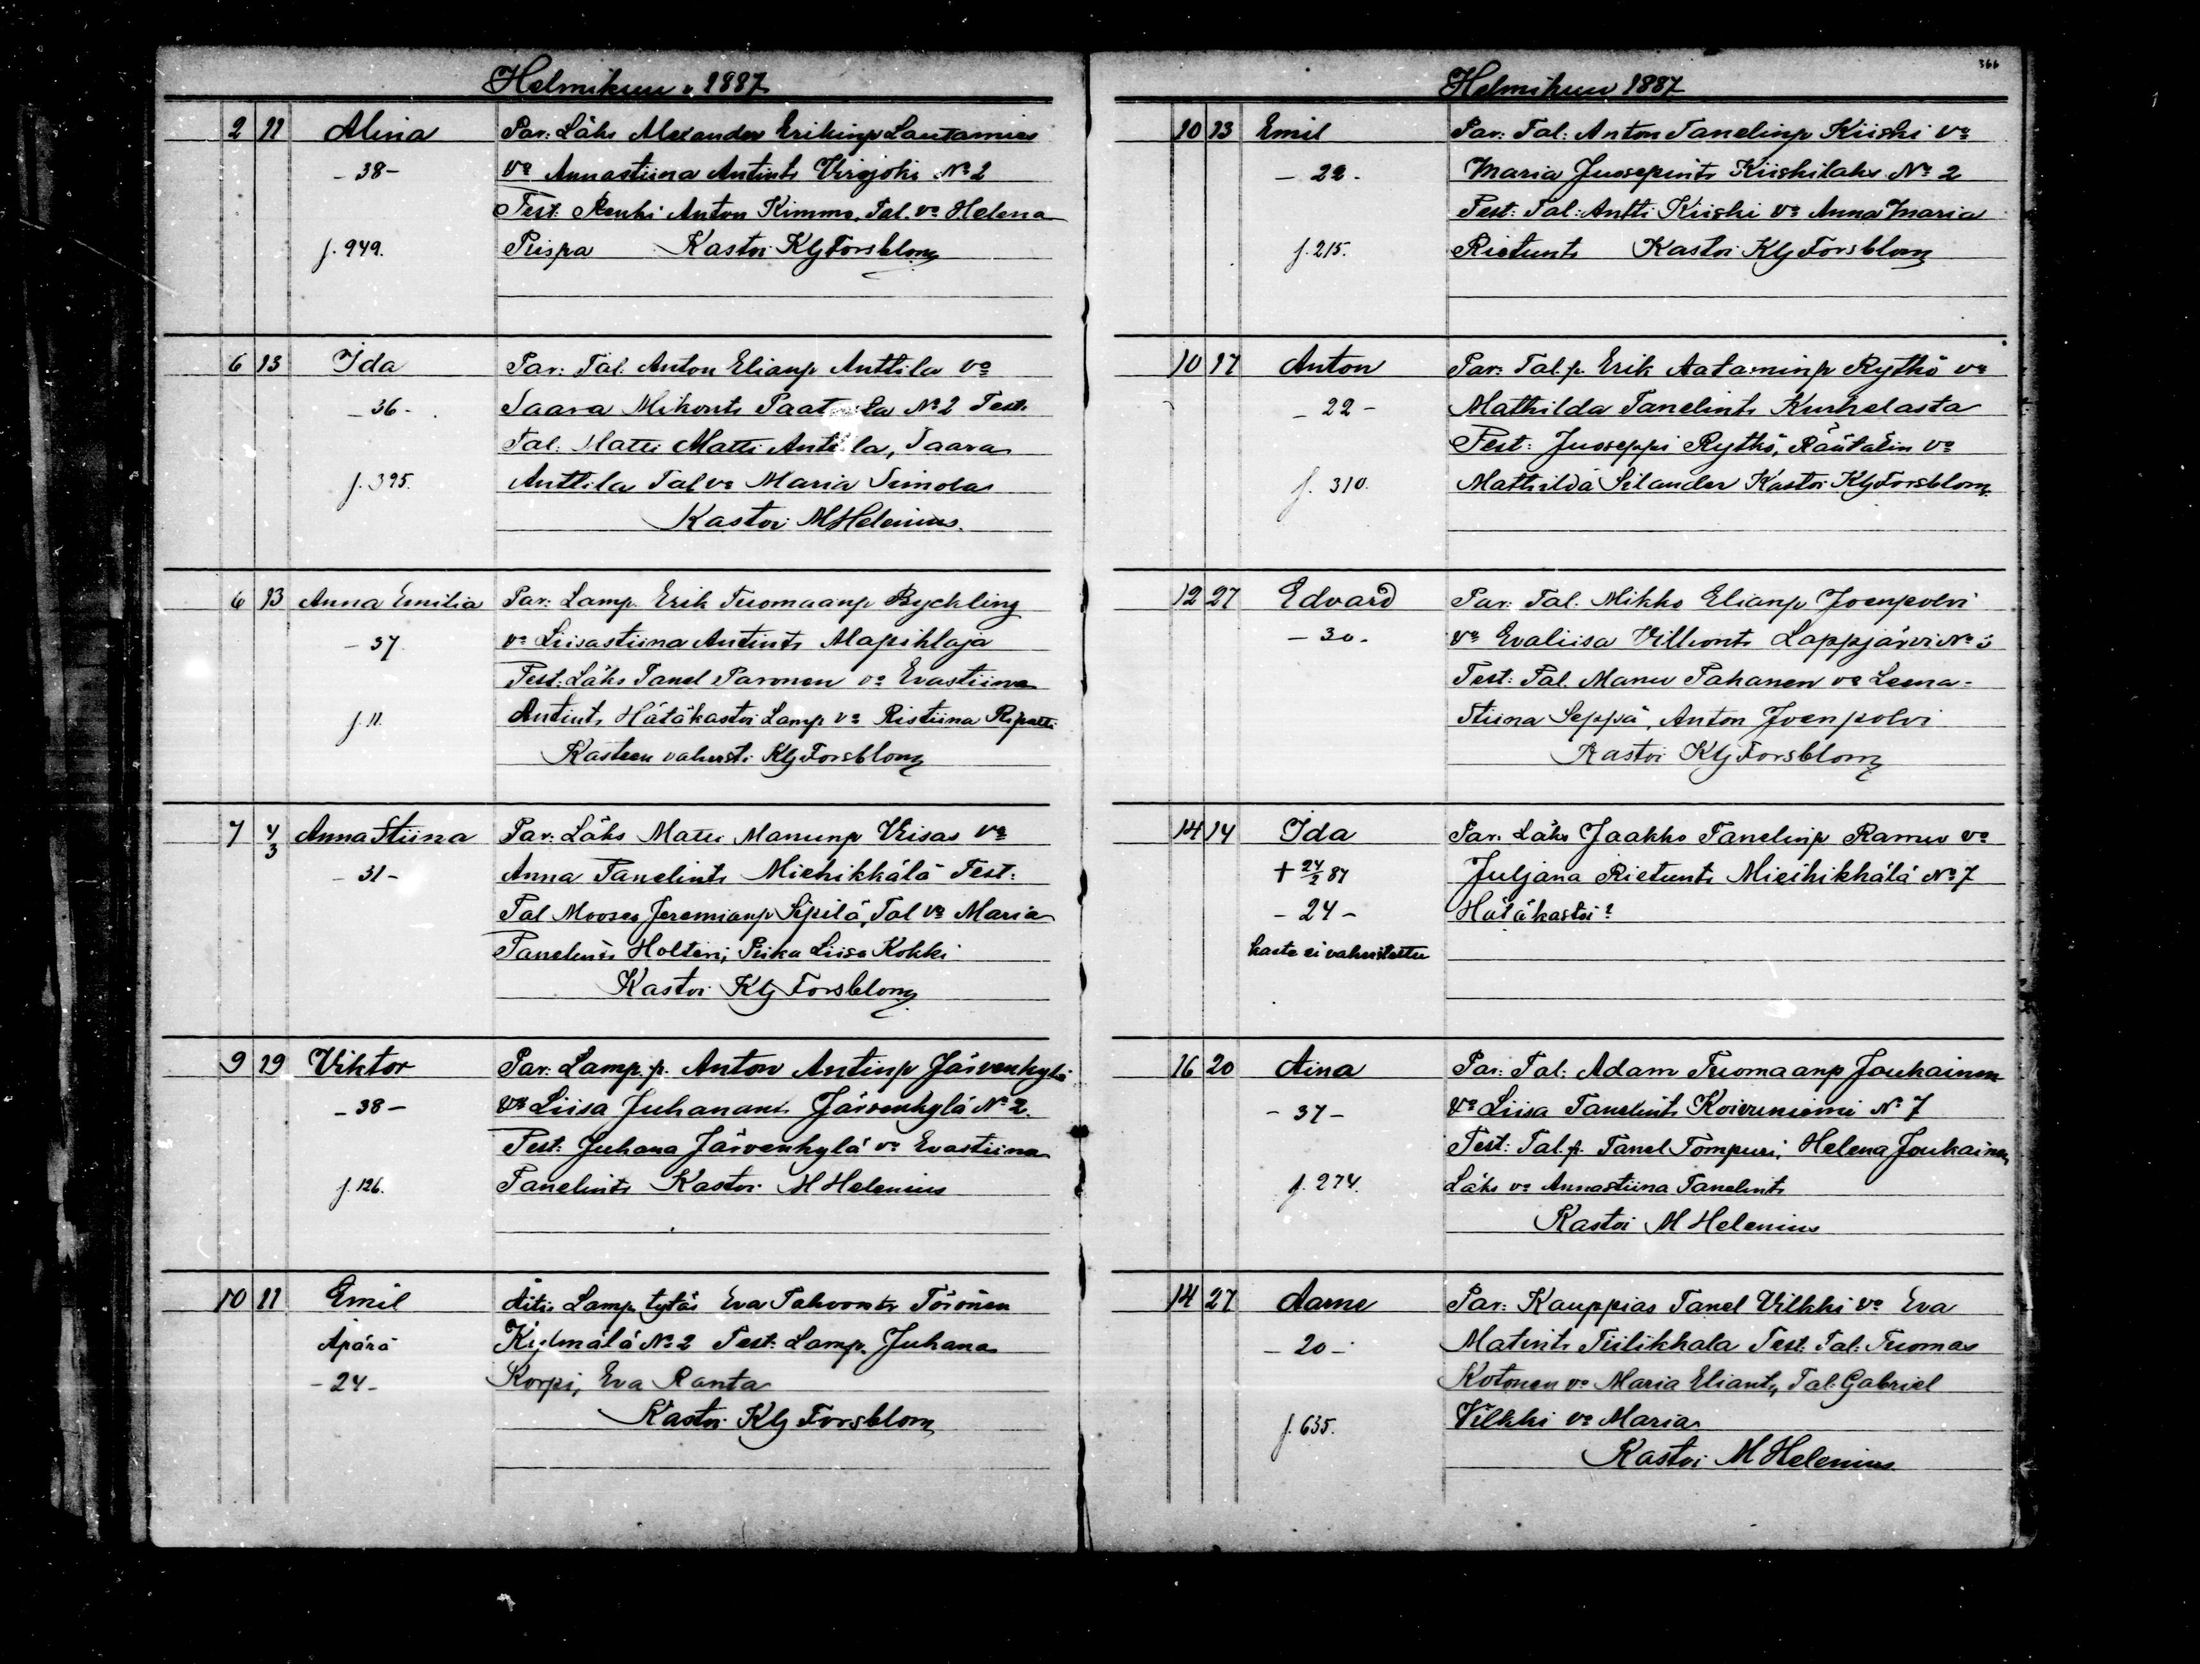 Helmikuu 1887
2 11 Alina Par: Läks Alexander Erikinp Lautamies
-38- va Annastiina Antints Virojoki No 2
Test: Renki Anton Kimmo, Tal. va Helena
f. 949. Piispa Kastoi Klj Forsblom
6 13 Ida Par: Tal: Anton Elianp Anttila va
-36- Saara Mikonts No 2 Test:
Tal: Matti Matti Anttila, Saara
f. 395. Anttila Tal va Maria Simola
Kastoi M Helenius.
6 13 Anna Emilia Par: Lamp. Erik Tuomaanp Bychling
-37 va Liisastiina Antints Alapihlaja
Test: Läks Tanel Paronen va Evastiina
f. 11. Antints Hätäkastoi Lamp va Ristiina Ripatti
Kasteen vahvisti Klj Forsblom
7 4/3 Anna Stiina Par: Läks Matti Manunp Viisas va
-31- Anna Tanelints Miehikkälä Test:
Tal Mooses Jeremianp Sipilä, Tal va Maria
Tanelints Holteri, Piika Liisa Kokki
Kastoi Klj Forsblom
9 19 Viktor Par: Lamp. p. Anton Antinp Järvenkylä
-38- va Liisa Juhanants Järvenkylä No 2.
Test: Juhana Järvenkylä va Evastiina
f. 126. Tanelints Kastoi M Helenius
10 11 Emil Äiti: Lamp. tytär Eva Tahvonts Törönen
Äpärä Kylmälä No 2 Test: Lamp. Juhana
-24- Korpi, Eva Ranta
Kastoi Klj Forsblom
366
Helmikuu 1887
10 13 Emil Par: Tal: Anton Tanelinp Kiiski va
-22- Maria Juosepints Kiiskilahs No 2
Test: Tal: Antti Kiiski va Anna Maria
f. 215. Rietunts Kastoi Klj Forsblom
10 17 Anton Par: Tal. p. Erik Aataminp Rythö va
-22- Mathilda Tanelints Kurkelasta
Test: Juoseppi Rythö, Räätälin va
f. 310. Mathilda Silander Kastoi Klj Forsblom
12 27 Edvard Par: Tal. Mikko Elianp Joenpolvi
-30- va Evaliisa Villionts Lappjärvi No
Test: Tal. Manu Pahanen va Leena-
Stiina Seppä, Anton Joenpolvi
Kastoi Klj Forsblom
14 14 Ida Par: Läks Jaakko Tanelinp Ramu va
+ 24/2 87 Juljana Rietunts Mieihikkälä No 7
-24- Hätäkastoi?
kaste ei vahvistettu
16 20 Aina Par: Tal: Adam Tuomaanp Joukainen
-37- va Liisa Tanelints Koivuniemi No 7
Test: Tal. p. Tanel Tompuri, Helena Joukainen
f. 274. Läks va Annastiina Tanelints
Kastoi M Helenius
14 27 Aarne Par: Kauppias Tanel Vilkki va Eva
-20- Matints Tiilikkala Test: Tal: Tuomas
Kotonen va Maria Eliants, Tal: Gabriel
f. 635. Vilkki va Maria
Kastoi M Helenius